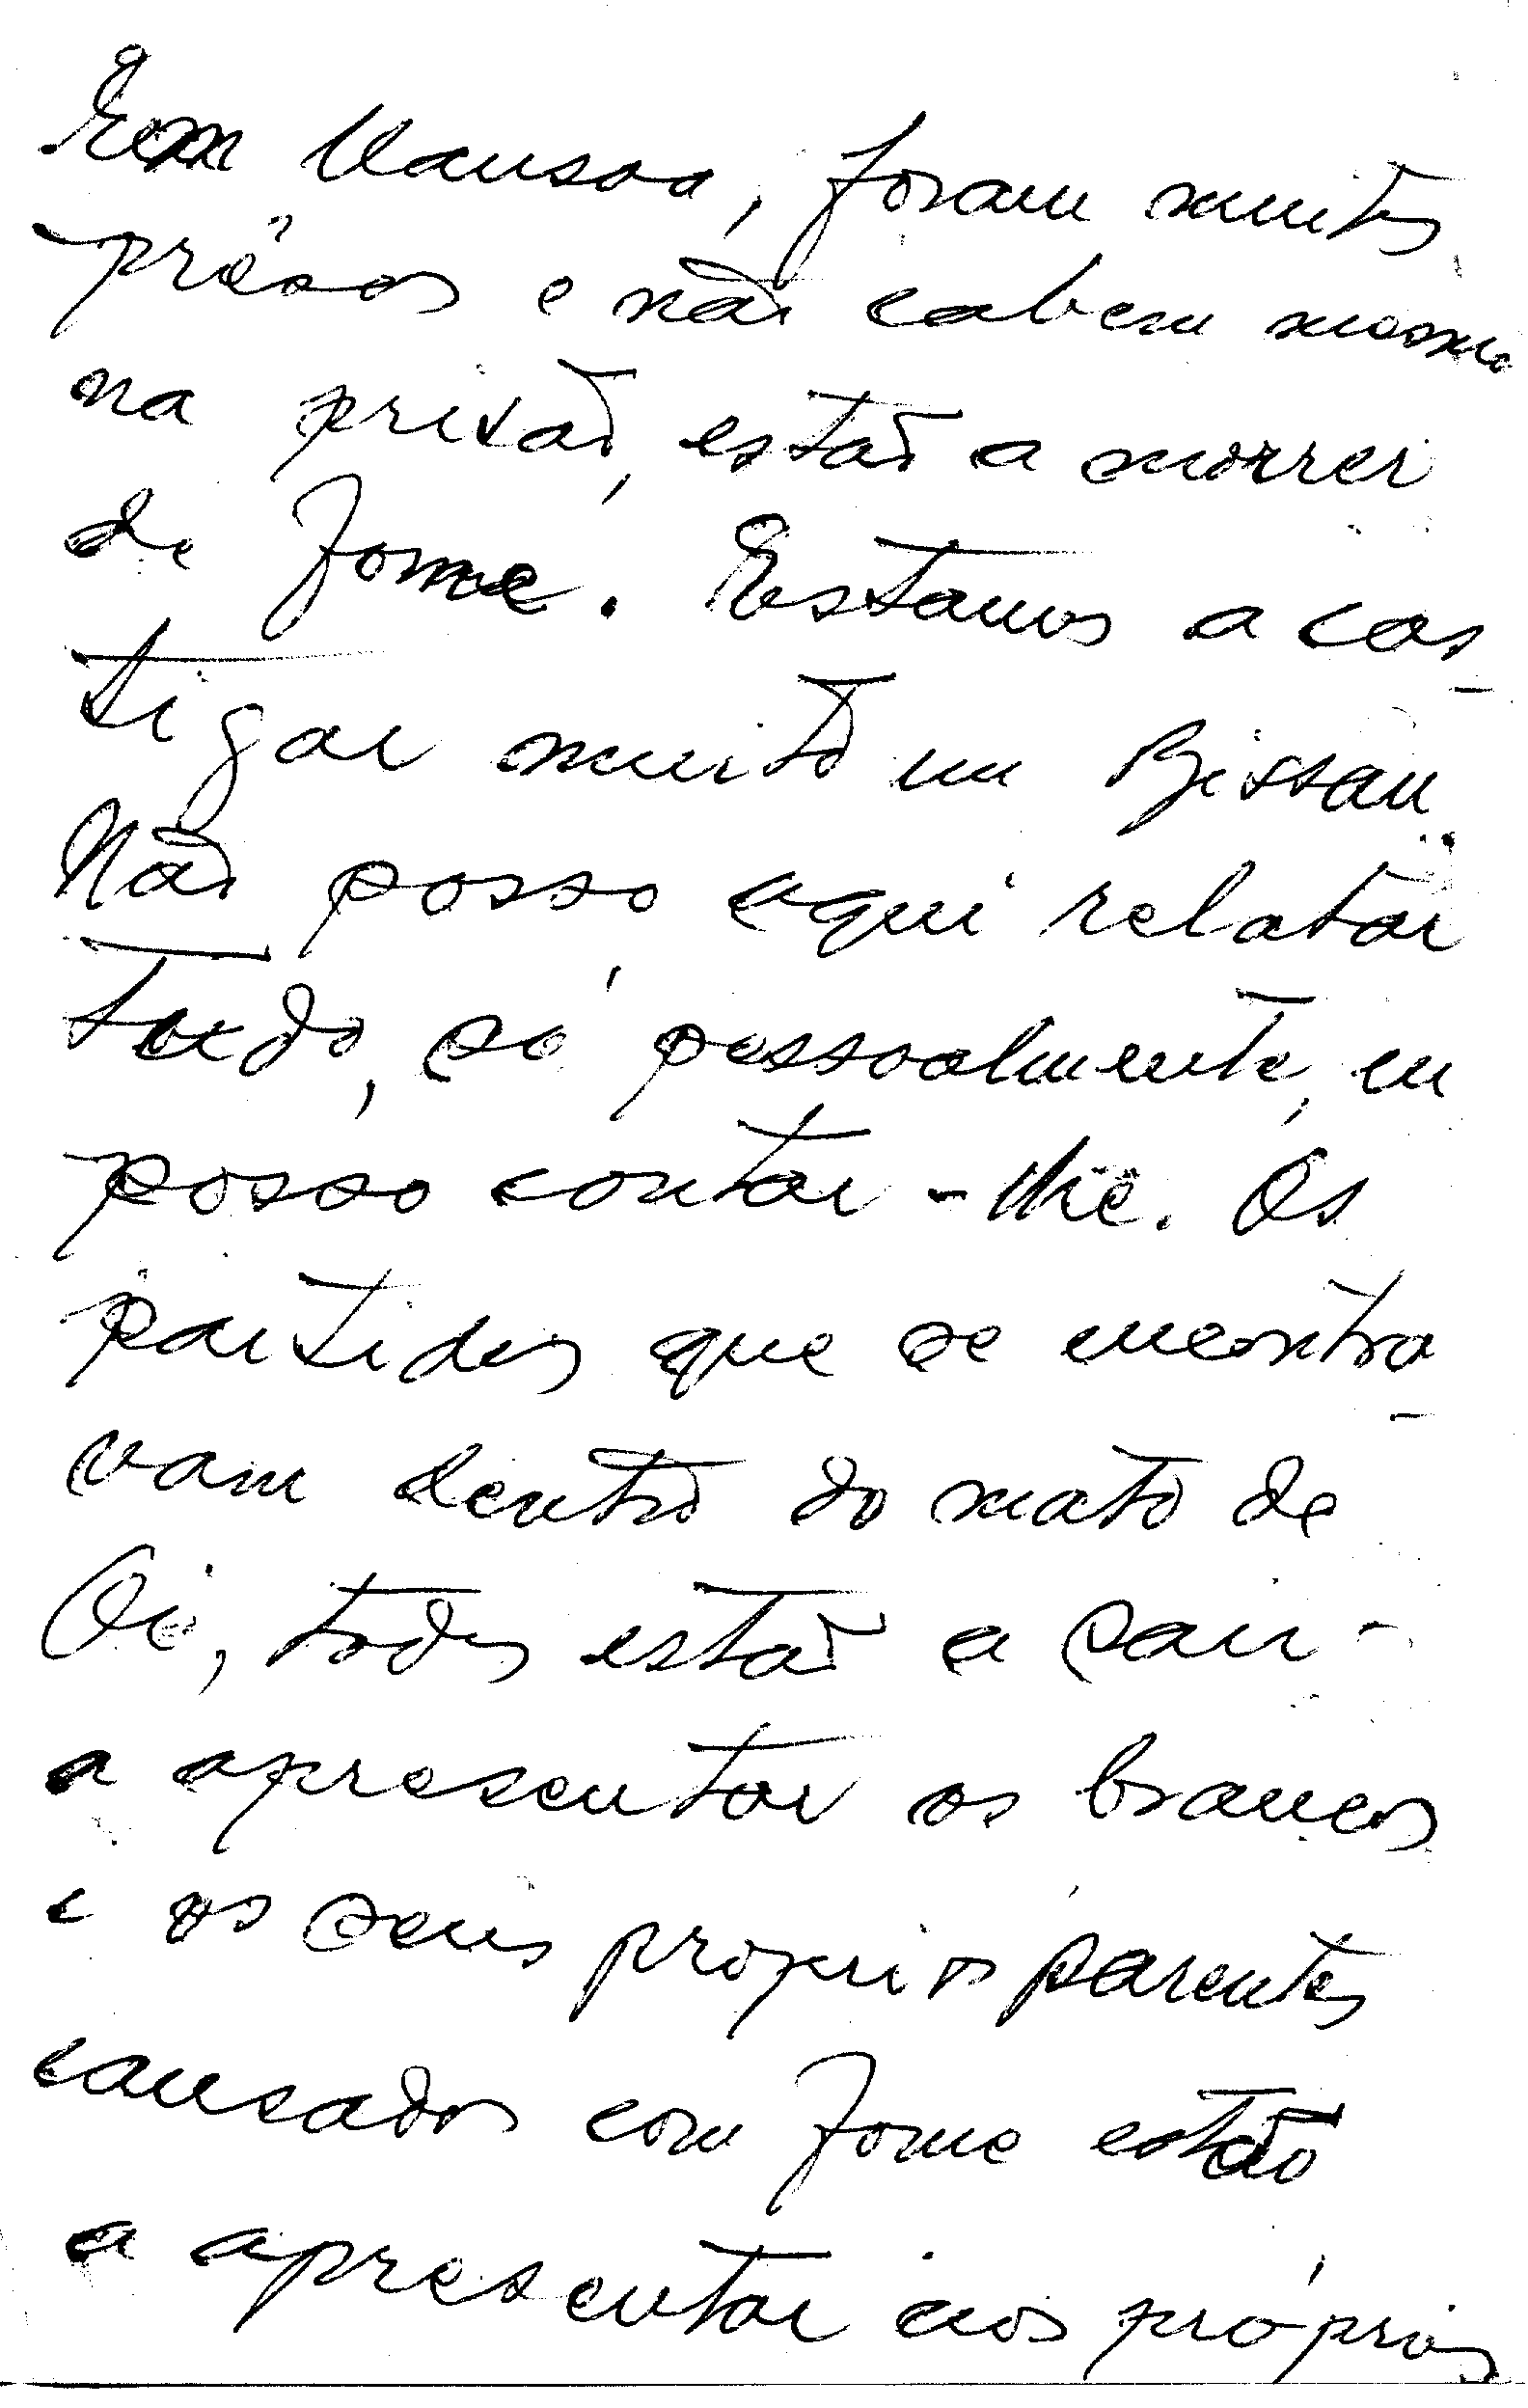 Em Mansoa, foram muitos
prêsos e não cabem mesmo
na prisão, estão a morrer
de fome. Estamos a cas-
tigar muito em Bissau.
Não posso aqui relatar
tudo, só pessoalmente, eu
posso contar-lhe. Os
partidos que se encontra-
vam dentro do mato de
Oio, todos estão a sair
a apresentar os brancos
e os seus proprios parentes
cansados com fome estão
a apresentar aos próprios